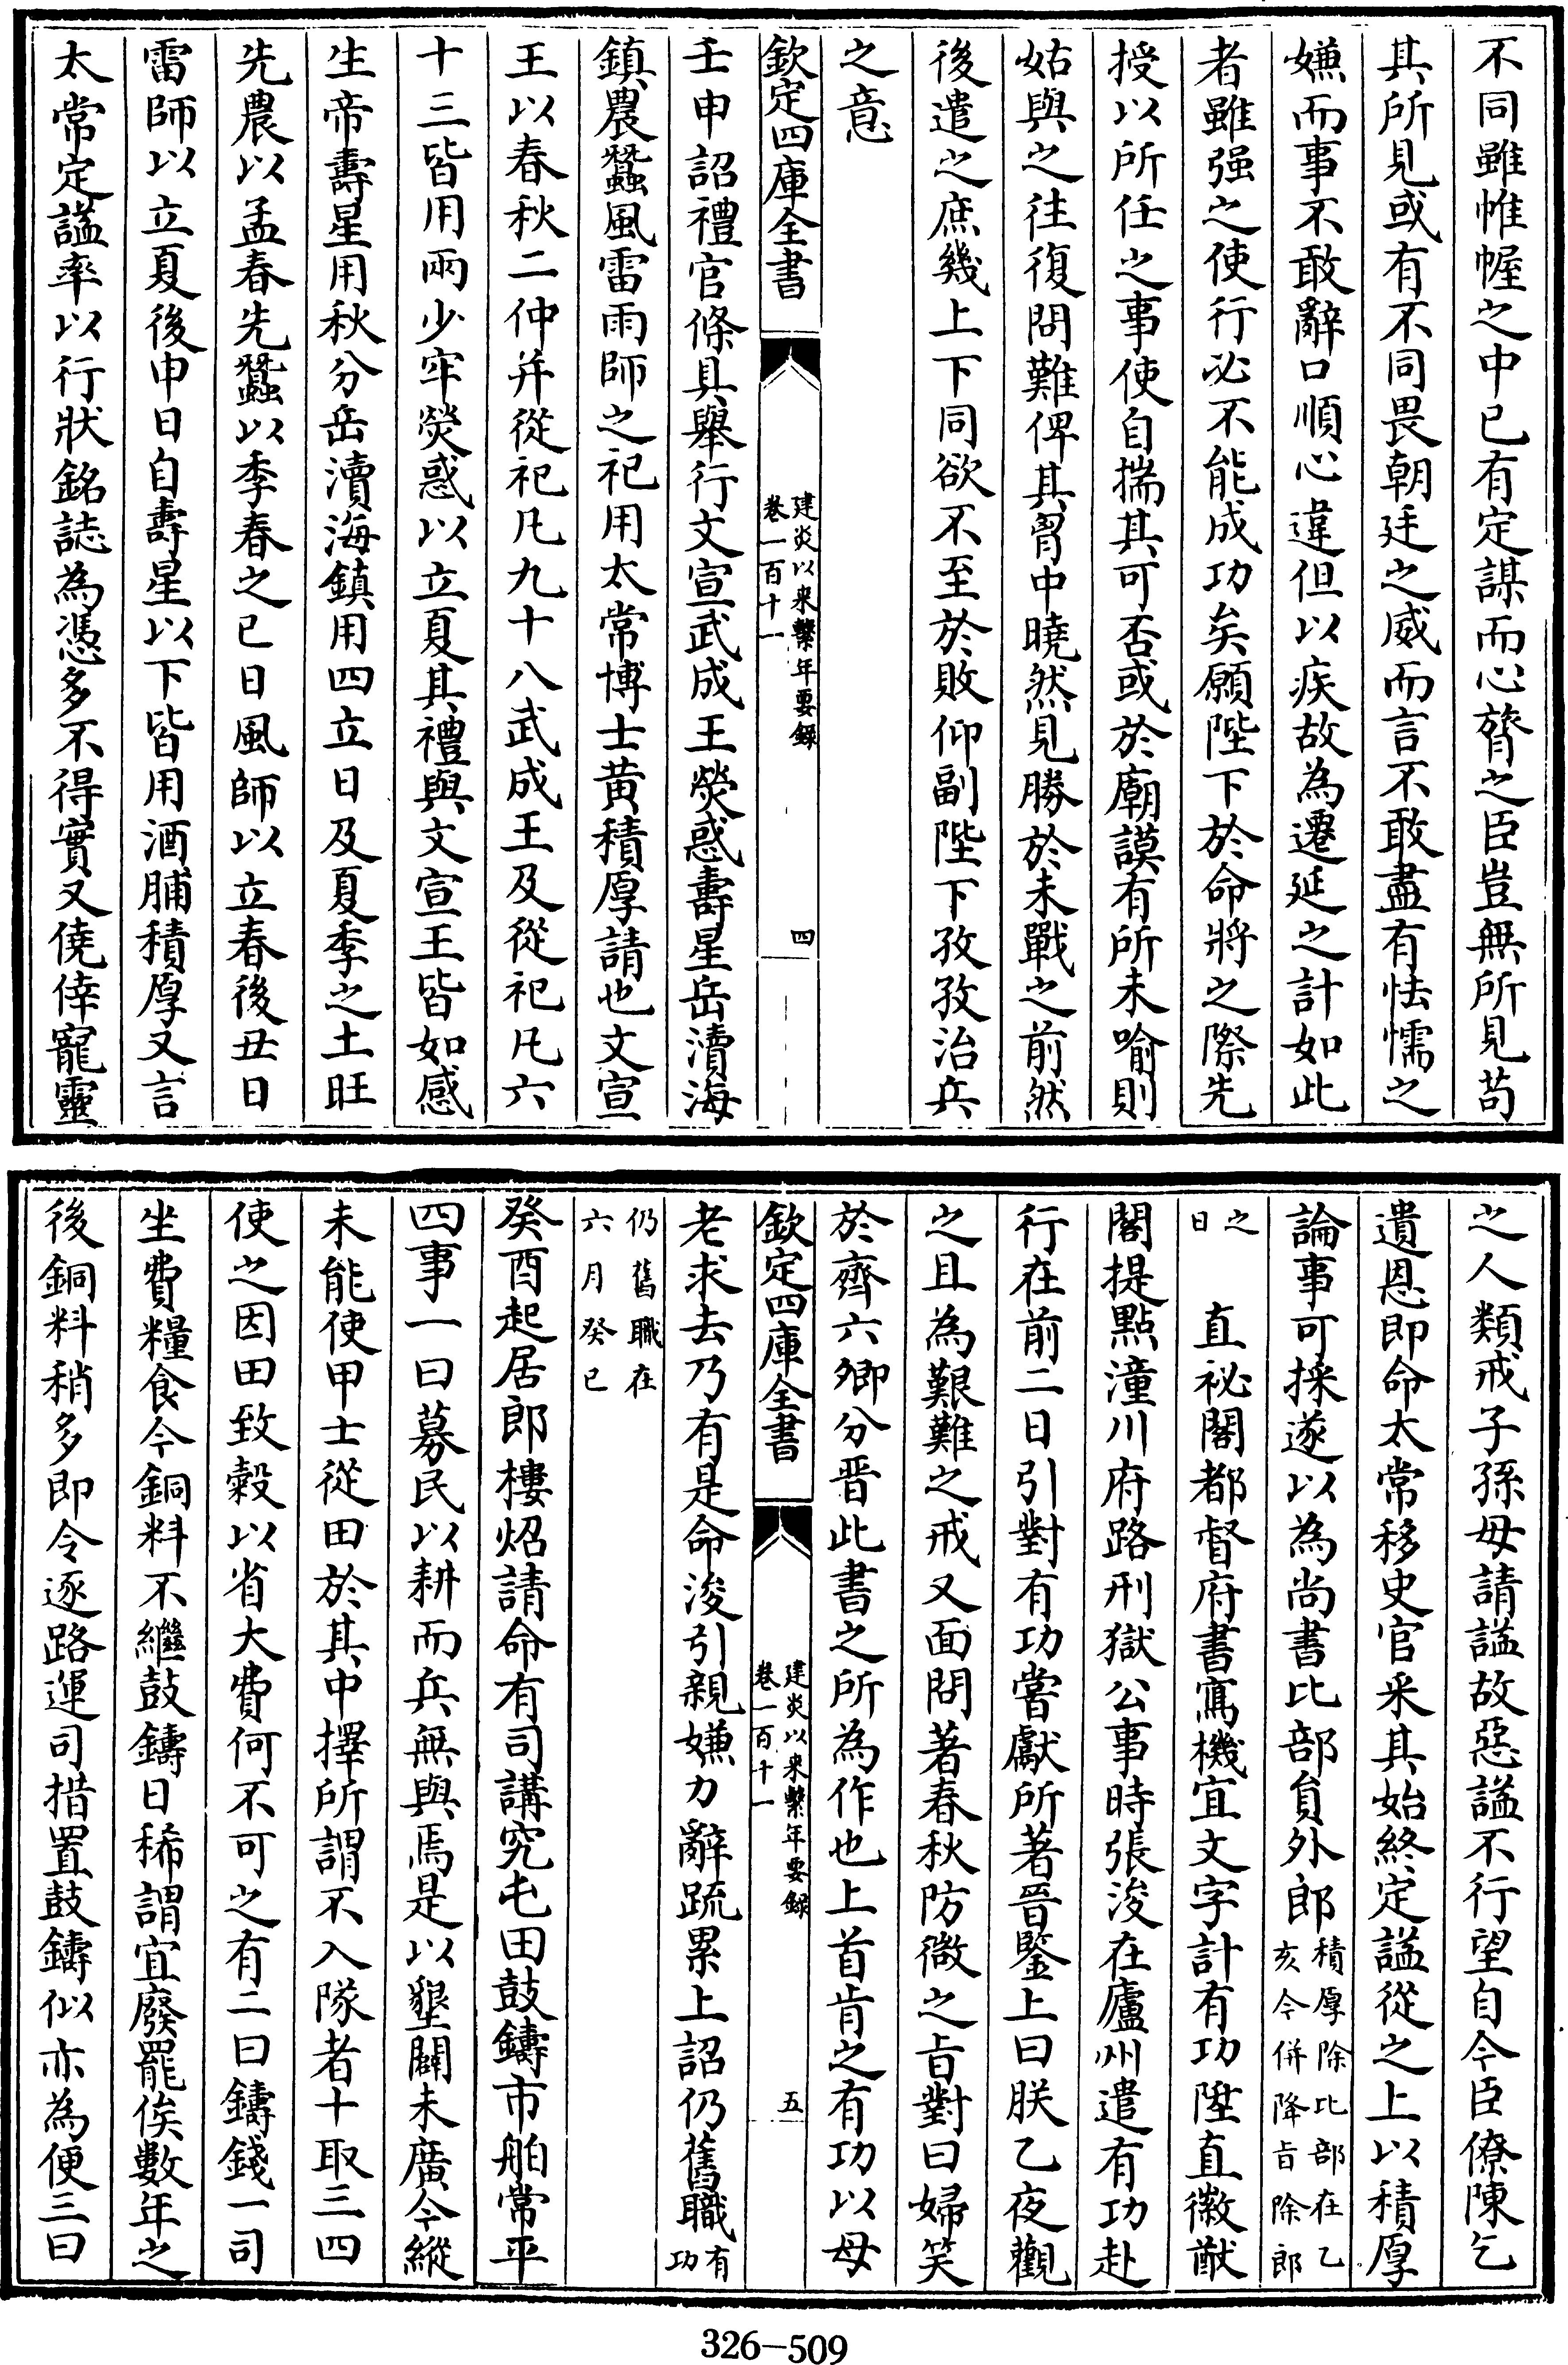 不同雖帷幄之中已有定謀而心膂之臣豈無所見苟
其所見或有不同畏朝廷之威而言不敢盡有怯懦之
嫌而事不敢辭口順心違但以疾故為遷延之計如此
者雖强之使行必不能成功矣願陛下於命將之際先
授以所任之事使自揣其可否或於廟謨有所未喻則
姑與之往復問難俾其胷中曉然見勝於未戰之前然
後遣之庶幾上下同欲不至於敗仰副陛下孜孜治兵
之意
欽定四庫全書
建炎以來繫年要錄
卷一百十一
四
壬申詔禮官條具舉行文宣武成王熒惑壽星岳瀆海
鎮農蠶風雷雨師之祀用太常博士黄積厚請也文宣
王以春秋二仲并從祀凡九十八武成王及從祀凡六
十三皆用兩少牢熒惑以立夏其禮與文宣王皆如感
生帝壽星用秋分岳瀆海鎮用四立日及夏季之土旺
先農以孟春先蠶以季春之已日風師以立春後丑日
雷師以立夏後申日自壽星以下皆用酒脯積厚又言
太常定諡率以行狀銘誌為憑多不得實又僥倖寵靈
之人類戒子孫毋請諡故惡諡不行望自今臣僚陳乞
遺恩即命太常移史官釆其始終定諡從之上以積厚
論事可採遂以為尚書比部員外郎積厚除比部在乙
亥今併降旨除郎
之
日
直祕閣都督府書寫機宜文字計有功陞直徽猷
閣提點潼川府路刑獄公事時張浚在廬州遣有功赴
行在前二日引對有功嘗獻所著晉鑒上曰朕乙夜觀
之且為艱難之戒又面問著春秋防微之旨對曰婦笑
於齊六卿分晉此書之所為作也上首肯之有功以母
欽定四庫全書
建炎以來繫年要錄
卷一百十一
五
老求去乃有是命浚引親嫌力辭疏累上詔仍舊職有
功
仍舊職在
六月癸已
癸酉起居郎樓炤請命有司講究屯田鼓鑄市舶常平
四事一曰募民以耕而兵無與焉是以墾闢未廣今縱
未能使甲士從田於其中擇所謂不入隊者十取三四
使之因田致穀以省大費何不可之有二曰鑄錢一司
坐費糧食今銅料不繼鼓鑄日稀謂宜廢罷俟數年之
後銅料稍多即令逐路運司措置鼓鑄似亦為便三曰
326-509